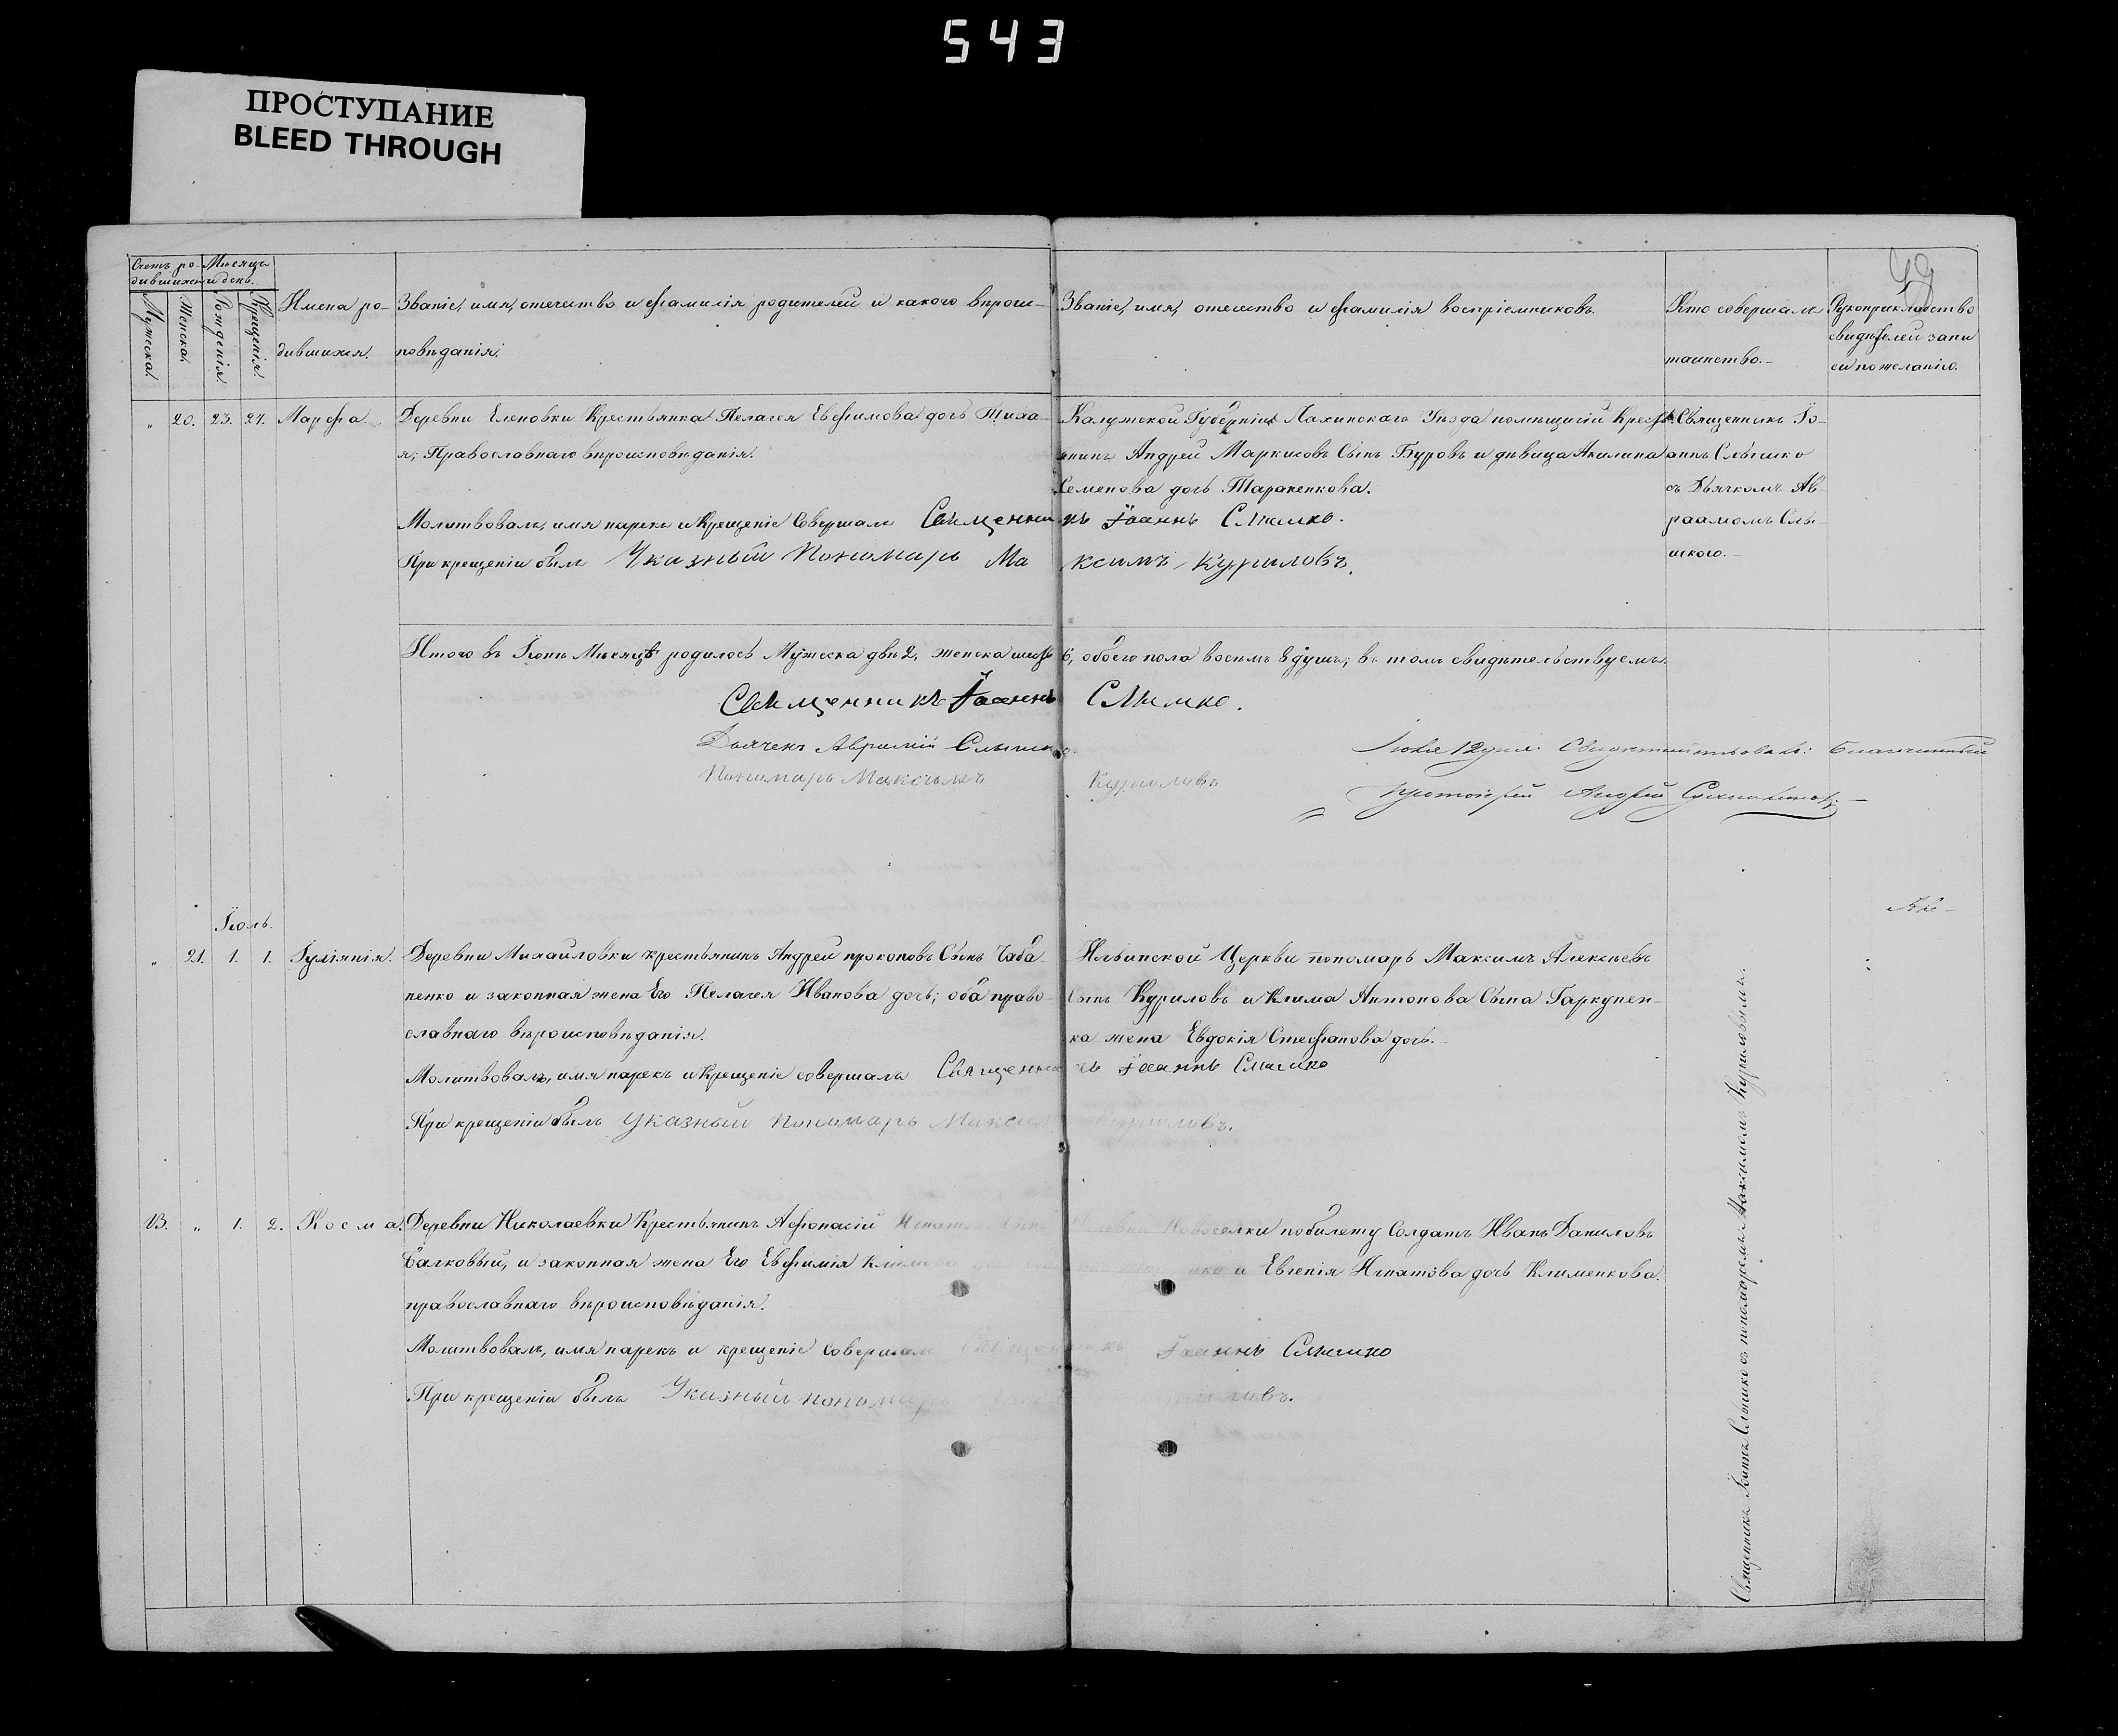 543
ПРОСТУПАНИЕ
BLEED THROUGH
49
Счетъ ро-
дившихся
Мѣсяцъ
и день.
Мужеска.
Женска.
Рожденія.
Крещенія.
Имена ро-
дившихся.
Званіе, имя, отечество и фамилія родителей и какого вѣроис-
повѣданія.
Званіе, имя, отечество и фамилія воспріемниковъ.
Кто совершалъ
таинство.
Рукоприкладство
свидѣтелей запи
си по желанію.
„ 20. 23. 24. Марфа. Деревни Еленовки Крестьянка Пелагея Евфимова дочь Тиха-
я; Православнаго вѣроисповѣданія.
Молитвовалъ, имя нарекъ и Крещеніе Совершалъ Священникъ Іоаннъ Слышко.
При крещеніи былъ Указный Пономарь Максимъ Куриловъ.
Калужской Губерніи Уѣзда помѣщичій Крестья-
нинъ Андрей Маркиовъ Сынъ Буровъ и дѣвица Акилина
Семенова дочь Тараненкова.
Священникъ Іо-
аннъ Слышко
съ Дьячкомъ Ав-
раамомъ Слы-
шкого.
Итого въ Іюнѣ Мѣсяцѣ родилось Мужеска двѣ 2, женска шесть 6, обоего пола восемь 8 душъ; въ томъ свидѣтельствуемъ.
Священникъ Іоаннъ Слышко.
Дьячекъ Аврамій Слышко
Пономарь Максимъ Куриловъ
Іюля 12 дня. Свидетельствовалъ: Благочинный
Протоіерей Андрей
Іюль.
„ 21. 1. 1. Іуліянія. Деревни Михайловки крестьянинъ Андрей прокоповъ Сынъ Чаба-
ненко и законная жена Его Пелагея Иванова дочь; оба право-
славнаго вѣроисповѣданія.
Молитвовалъ, имя нарекъ и Крещеніе совершалъ Священникъ Іоаннъ Слышко
При крещеніи былъ Указный Пономарь Максимъ Куриловъ.
Ильинской Церкви пономарь Максимъ Алексѣевъ
Сынъ Куриловъ и Клима Антонова Сына Гаркунен-
ка жена Евдокія Стефанова дочь.
13. „ 1. 2. Косма. Деревни Николаевки Крестьянинъ Афонасій Игнатовъ Сынъ
Балковый, и законная жена Его Евфимія Климова
православнаго вѣроисповѣданія.
Молитвовалъ, имя нарекъ и крещеніе совершалъ Священникъ Іоаннъ Слышко
При крещеніи былъ Указный пономарь Куриловъ.
Деревни Новоселки по билету Солдатъ Иванъ Даниловъ
и Евгенія Игнатова дочь Клименкова.
Священникъ Іоаннъ Слышко съ пономаремъ Максимомъ Куриловымъ.